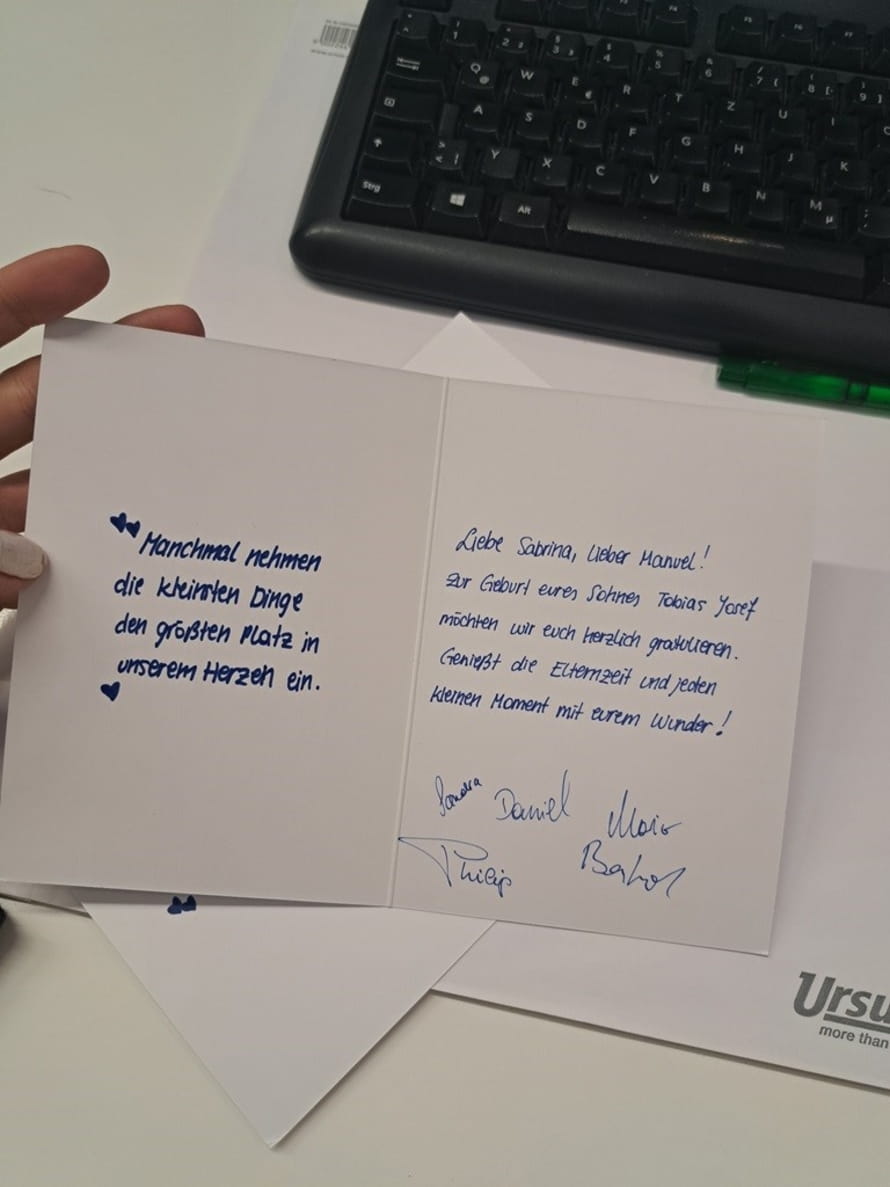 Manchmal nehmen
die kleinsten Dinge
den größten Platz in
unserem Herzen ein.
Liebe Sabrina, lieber Manuel!
Zur Geburt eures Sohnes Tobias Josef
möchten wir euch herzlich gratulieren.
Genießt die Elternzeit und jeden
kleinen Moment mit eurem Wunder!
Sandra Daniel
Philip
Ursu
more than
Q W E R T Z U I
A S D F G H J K
Y X C V B N M
Strg Alt